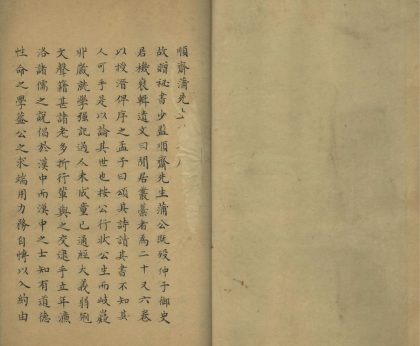 順齋蒲先生
故贈秘書少監順齋先生蒲公既歿仲子御史
君機裒輯遺文曰閒居叢藁者為二十又六卷
以授溍俾序之孟子曰頌其詩讀其書不知其
人可乎是以論其世也按公行狀公生而岐嶷
丱歲就學強記過人未成童已通經大義弱冠
文聲籍甚諸老多折行輩與之交逮乎立年濂
洛諸儒之說倡於漢中而漢中之士知有道德
性命之學蓋公之求端用力務自博以入約由